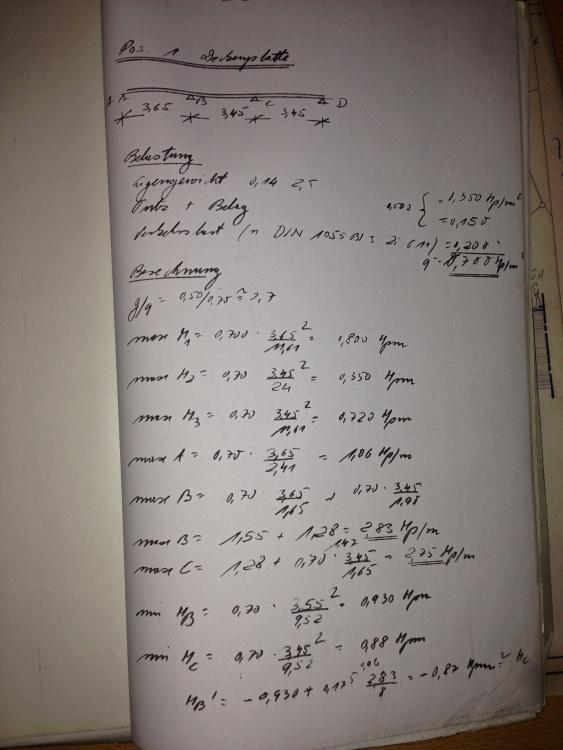 Pos. 1 Deckenplatte
A B C D
3,65 3,45 3,45
Belastung
Eigengewicht 0,14 · 2,5 = 0,350 Mp/m²
Putz + Belag = 0,150
0,500
Verkehrslast (n DIN 1055 Bl 3 = 0,200
q = 0,700 Mp/m²
Berechnung
g/q = 0,50/0,70 ≈ 0,7
max M1 = 0,700 · 3,65²/11,61 = 0,800 Mpm
max M2 = 0,70 · 3,45²/24 = 0,350 Mpm
max M3 = 0,70 · 3,45²/11,61 = 0,720 Mpm
max A = 0,70 · 3,65/2,41 = 1,06 Mp/m
max B = 0,70 · 3,65/1,65 + 0,70 · 3,45/1,88
max B = 1,55 + 1,28 = 2,83 Mp/m
max C = 1,28 + 0,70 · 3,45/1,65 = 2,75 Mp/m
1,47
min MB = 0,70 · 3,55²/9,52 = 0,930 Mpm
min MC = 0,70 · 3,45²/9,52 = 0,88 Mpm
0,06
MB' = -0,930 + 0,175 · 2,83/8 = -0,87 Mpm ≈ MC